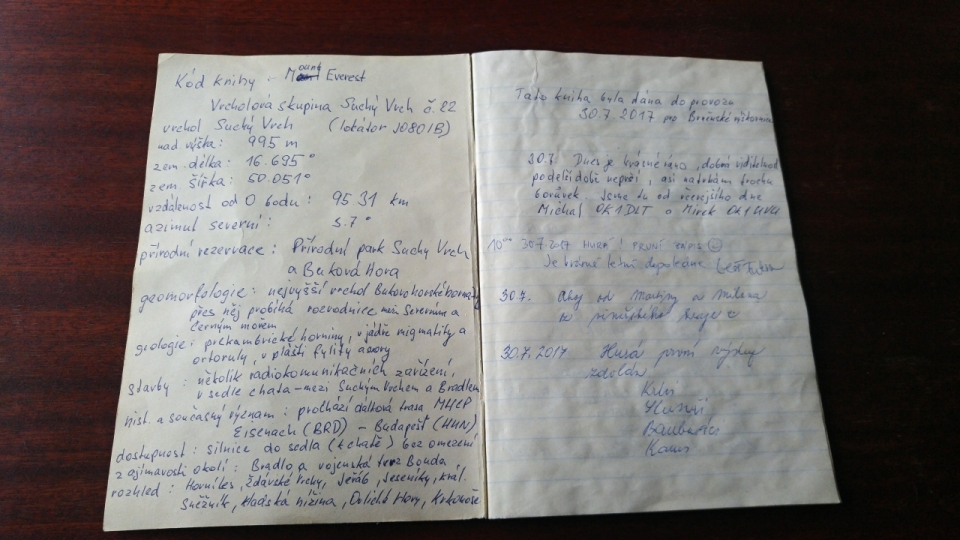 Kód knihy - Mount Everest
Vrcholová skupina Suchý Vrch č. 22
vrchol Suchý Vrch (lokátor JO80IB)
nad. výška: 995 m
zem. délka: 16.695°
zem. šířka: 50.051°
vzdálenost od 0 bodu: 95 31 km
azimut severní: 5.7°
přírodní rezervace: Přírodní park Suchý Vrch
a Buková Hora
geomorfologie: nejvyšší vrchol
přes něj probíhá rozvodnice mezi Severním a
Černým mořem
geologie: prekambrické horniny, v jádře migmatity a
ortoruly, v plášti fylity a
stavby: několik radiokomunikačních zařízení,
v sedle chata - mezi Suchým Vrchem a Bradlem
hist. a současný význam: prochází dálková trasa MHEP
Eisenach (BRD) - Budapešť (HUN)
dostupnost: silnice do sedla (k chatě) bez omezení
zajímavosti okolí: Bradlo a vojenská tvrz Bouda
rozhled: Žďárské vrchy, Jeřáb, Jeseníky, Král.
Sněžník, Kladská nížina, Orlické Hory, Krkonoše
Tato kniha byla dána do provozu
30.7.2017 po
30.7. Dnes je krásné ráno, dobrá viditelnost
podezdobě neprší, asi natrhám trochu
borůvek. Jsme tu od včerejšího dne
Michal OK1DLT a Mirek
10⁰⁰ 30.7.2017 HURÁ! PRVNÍ ZÁPIS ☺
Je krásné letní dopoledne
30.7. Ahoj od Martiny a Milana
30.7.2017 Hurá první
zdolán